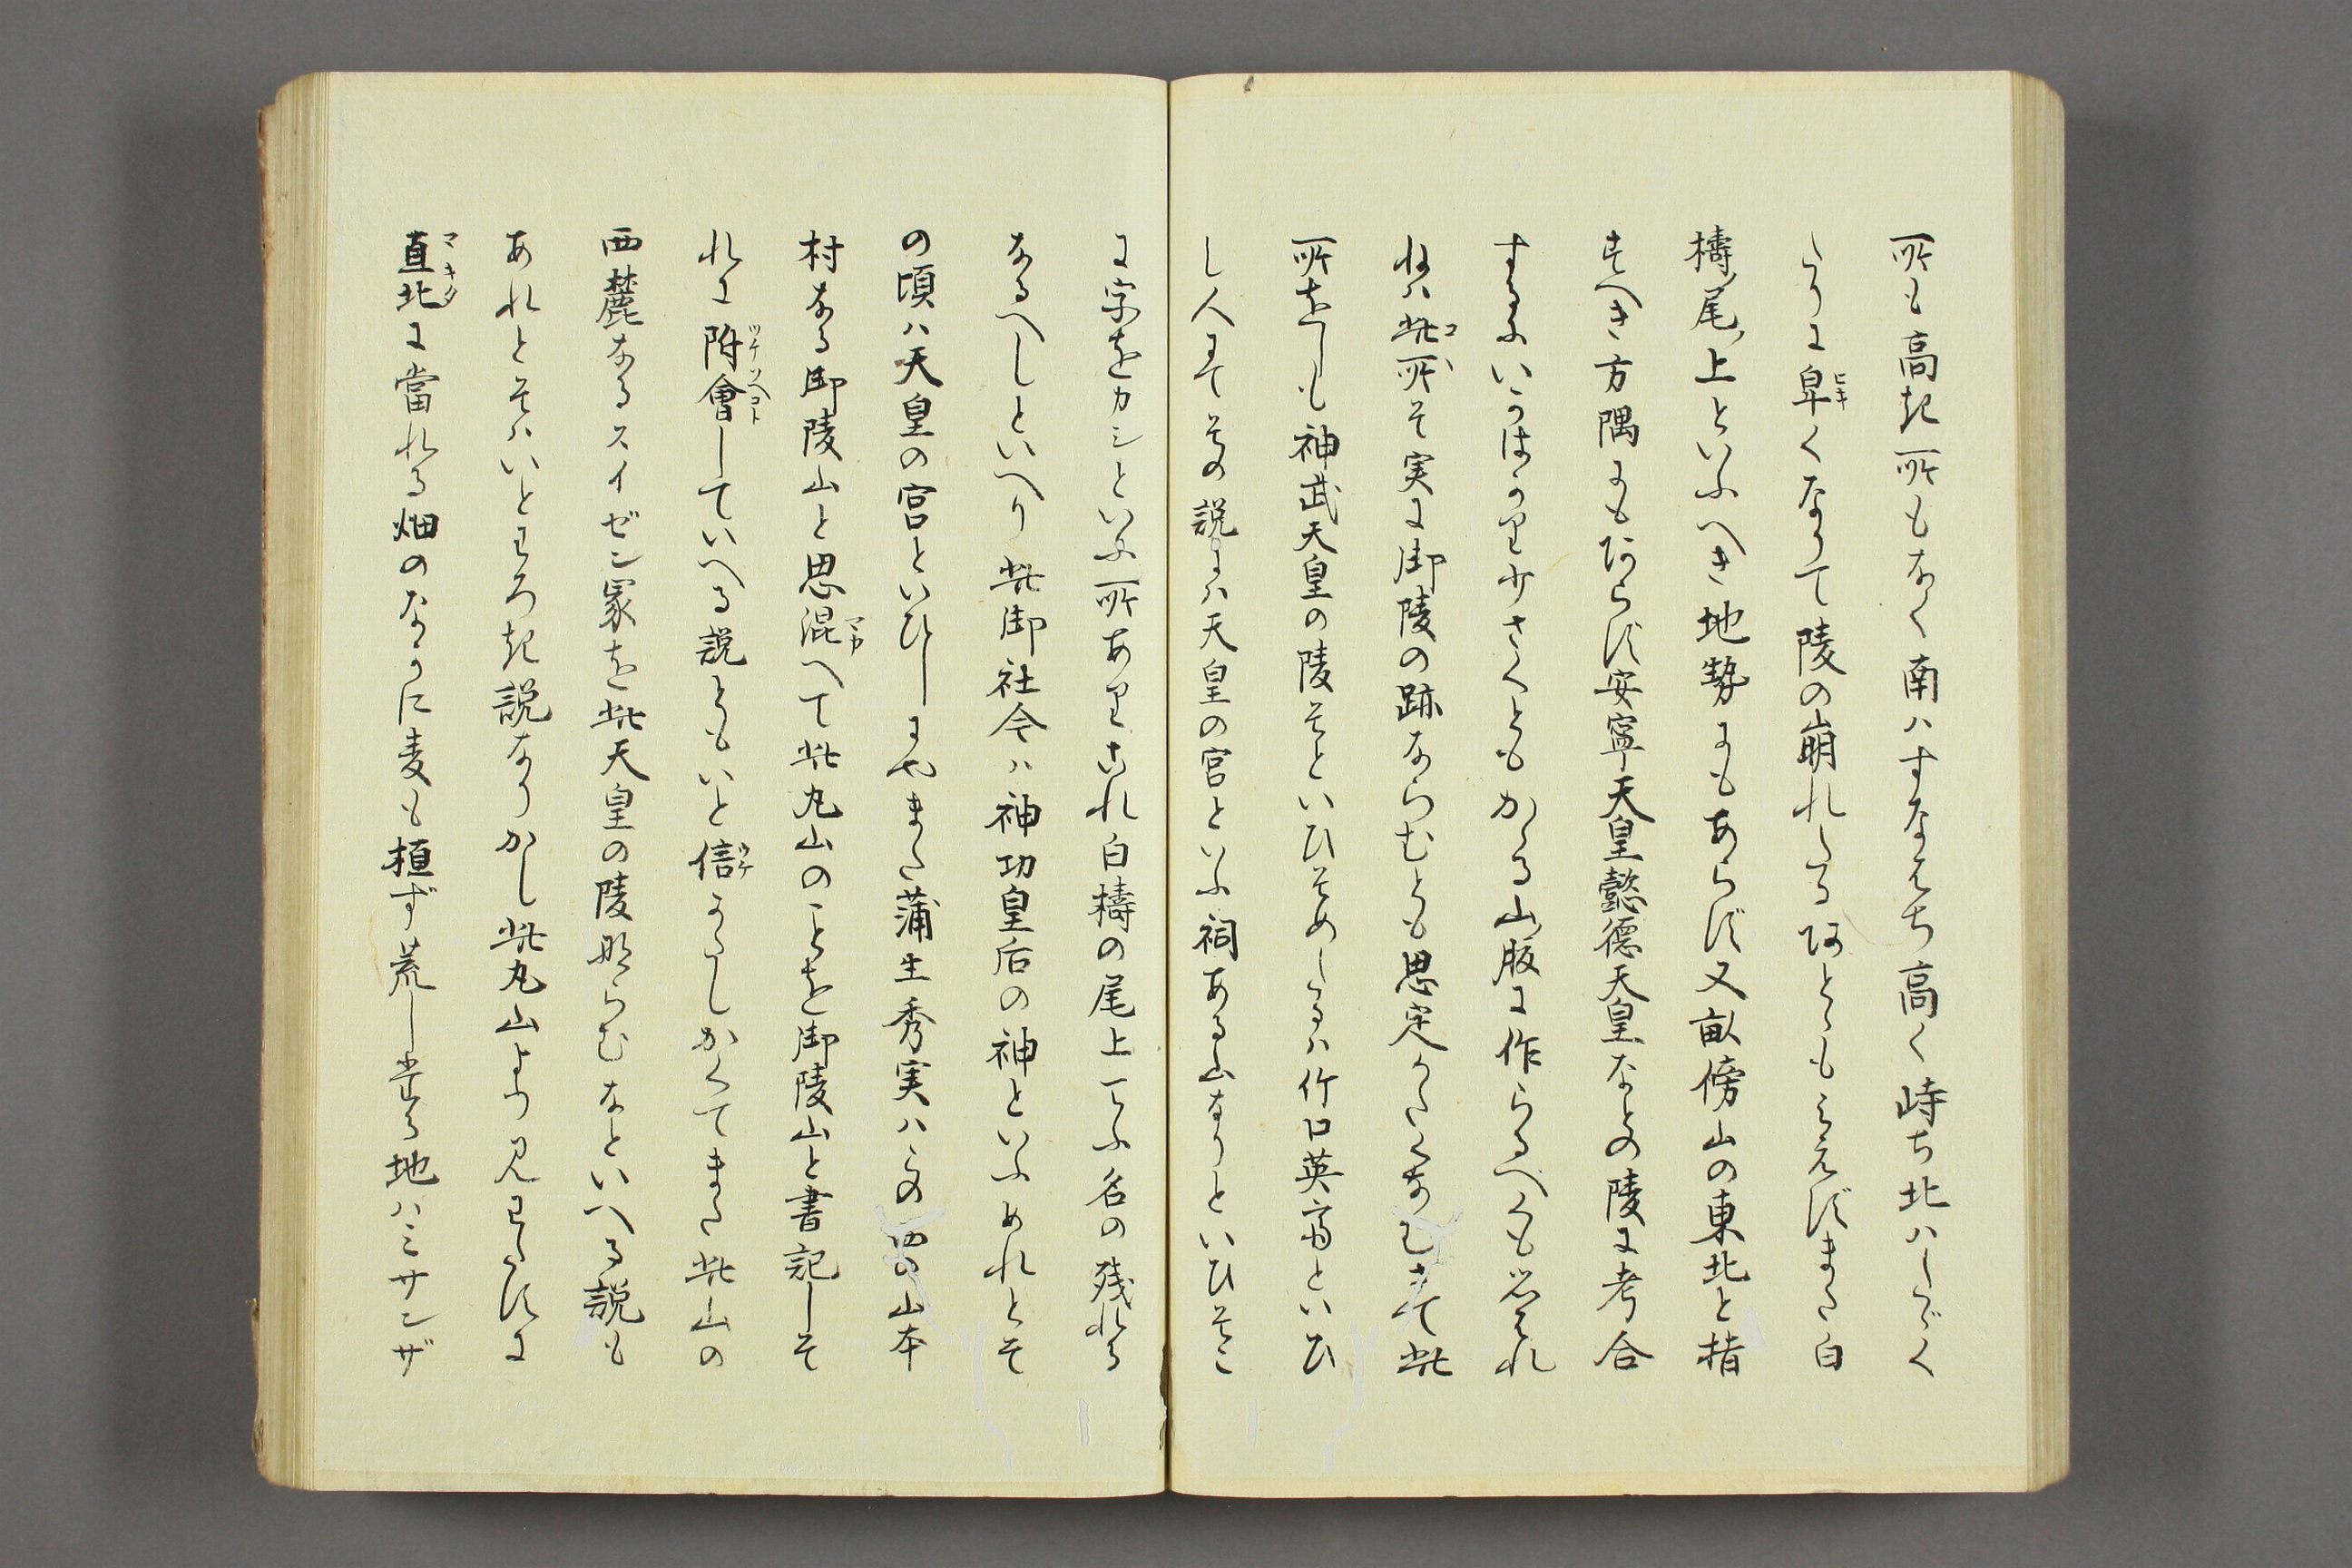 所も高き所もなく南ハすなはち高く峙ち北ハしたゝく
たりに卑くなりて陵の崩れしるあとゝもみえずまた白
檮ノ尾ノ上といふへき地勢にもあらず又畝傍山の東北と指
すへき方隅にもあらず安寧天皇懿徳天皇なとの陵に考合
するにいかはかり少さくともかゝる山腹に作らるへくも覚えれ
ねハ此所そ実に御陵の跡ならむとも思定かたくなむさて此
所をしも神武天皇の陵そといひそめしハ竹口英斎といひ
し人にてその説にハ天皇の宮といふ祠ある山なりといひそこ
に字をカシといふ所ありこれ白檮の尾上てふ名の残れる
なるへしといへり此御社今ハ神功皇后の神といふめれとそ
の頃ハ天皇の宮といひしにやまた蒲生秀実ハこの西の山本
村なる御陵山と思混へて此丸山のことを御陵山と書記しそ
れに附會していへる説ともいと信かたしかくてまた此山の
西麓なるスイゼン冢を此天皇の陵ならむなといへる説も
あれとそハいとわろき説なりかし此丸山より見わたすに
直北に當れる畑のなかに麦も植ず荒しある地ハミサンザ